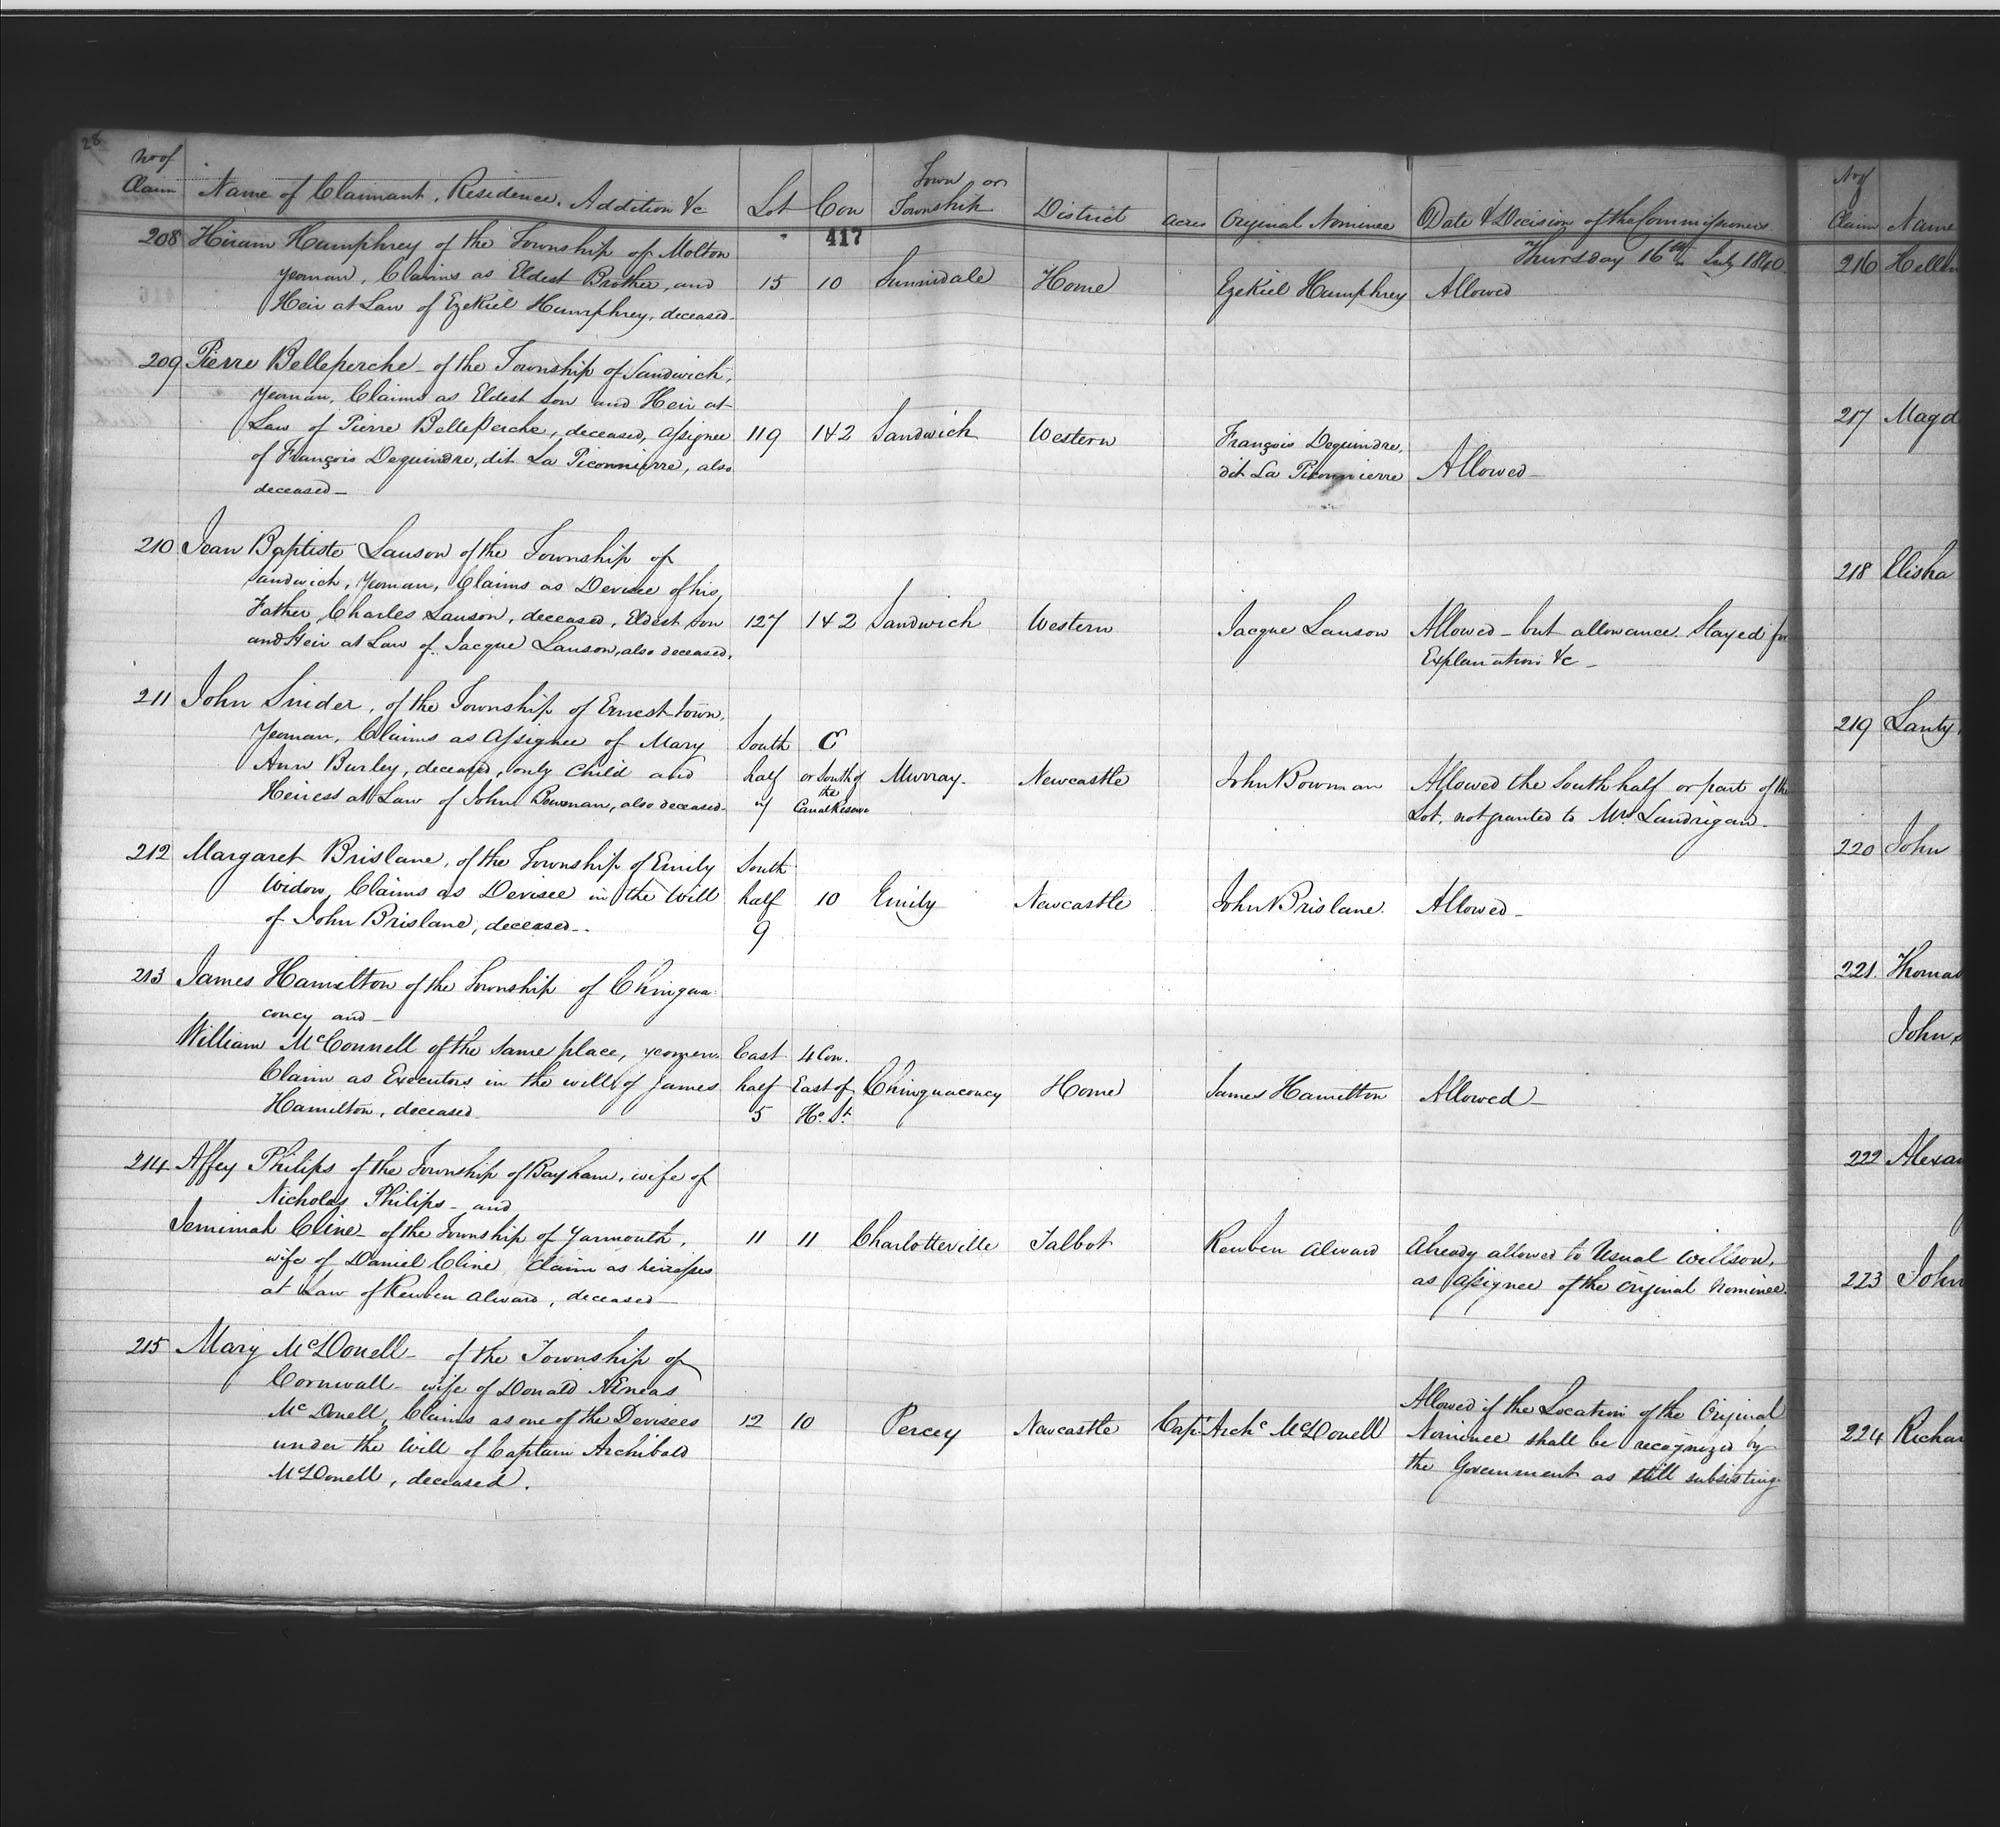 28
No of
Claim
Name of Claimant, Residence, Addition &c
Lot
Con
Town or
Township
District
Acres
Original Nominee
Date & Decision of the Commissioners
417
Thursday 16th July 1840.
208 Hiram Humphrey of the Township of Molton
yeoman, Claims as Eldest Brother, and
Heir at Law of Ezekiel Humphrey, deceased.
15 10 Sunnidale Home Ezekiel Humphrey Allowed
209 Pierre Belleperche of the Township of Sandwich,
Yeoman, Claims as Eldest Son and Heir at
Law of Pierre BellePerche, deceased, Assignee
of François Dequindre, dit La Piconnierre, also
deceased
119 1 & 2 Sandwich Western François Dequindre,
dit La Piconnierre Allowed
210 Jean Baptiste Lauson of the Township of
Sandwich, Yeoman, Claims as Devisee of his
Father, Charles Lauson, deceased, Eldest Son
and Heir at Law of Jacque Lauson, also deceased.
127 1 & 2 Sandwich Western Jacque Lauson Allowed - but allowance Stayed for
Explanation &c
211 John Snider, of the Township of Ernest-town,
Yeoman, Claims as Assignee of Mary
Ann Burley, deceased, only Child and
Heiress at Law of John Bowman, also deceased
South
half
C
or South of
the
Canal Reserve
Murray. Newcastle John Bowman Allowed the South half or part of the
Lot, not granted to Mrs Landrigan.
212 Margaret Brislane, of the Township of Emily
Widow, Claims as Devisee in the Will
of John Brislane, deceased
South
half
9
10 Emily Newcastle John Brislane. Allowed
213 James Hamilton of the Township of Chingua:
coucy and
William McConnell of the same place, yeomen
Claim as Executors in the will of James
Hamilton, deceased
East
half
5
4 Con.
East of
Ho. St.
Chinguacoucy Home James Hamilton Allowed
214 Affey Philips of the Township of Bayham, wife of
Nicholas Philips - and
Jemimah Cline - of the Township of Yarmouth,
wife of Daniel Cline, Claim as heiresses
at Law of Reuben Alward, deceased
11 11 Charlotteville Talbot Reuben Alward Already allowed to Usual Willson,
as Assignee of the Original Nominee.
215 Mary McDonell - of the Township of
Cornwall - wife of Donald Æneas
McDonell, Claims as one of the Devisees
under the Will of Captain Archibald
McDonell, deceased.
12 10 Percey Newcastle Capt Archd McDonell
Allowed if the Location of the Original
Nominee shall be recognized by
the Government as still subsisting
No of
Claim Name
216
217 Magd
218 Elisha
219
220 John
221. Thomas
John
222 Alexan
223 John
224 Richar